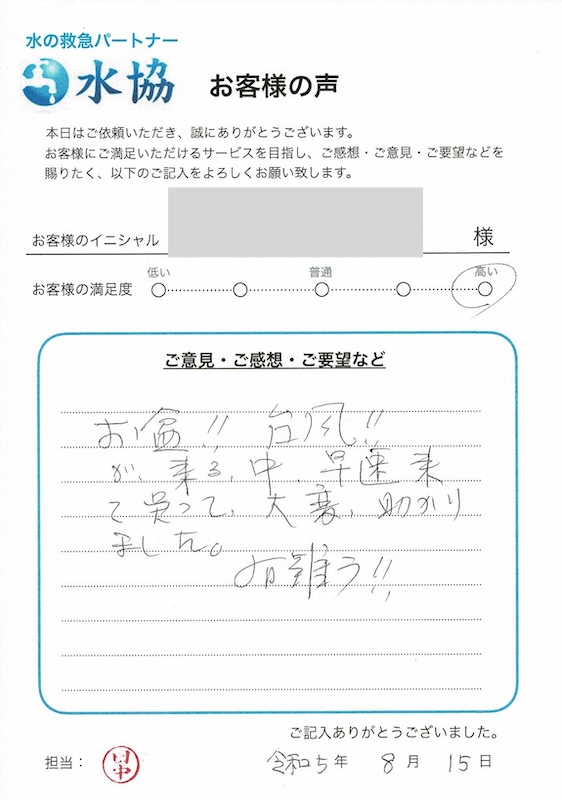 水の救急パートナー
水協 お客様の声
本日はご依頼いただき、誠にありがとうございます。
お客様にご満足いただけるサービスを目指し、ご感想・ご意見・ご要望などを
賜りたく、以下のご記入をよろしくお願い致します。
お客様のイニシャル 様
低い 普通 高い
お客様の満足度
ご意見・ご感想・ご要望など
お盆!! 台風!!
が、来る、中、早速来
て貰って、大変、助かり
ました。
有難う!!
ご記入ありがとうございました。
担当： 田中 令和5年 8月 15日